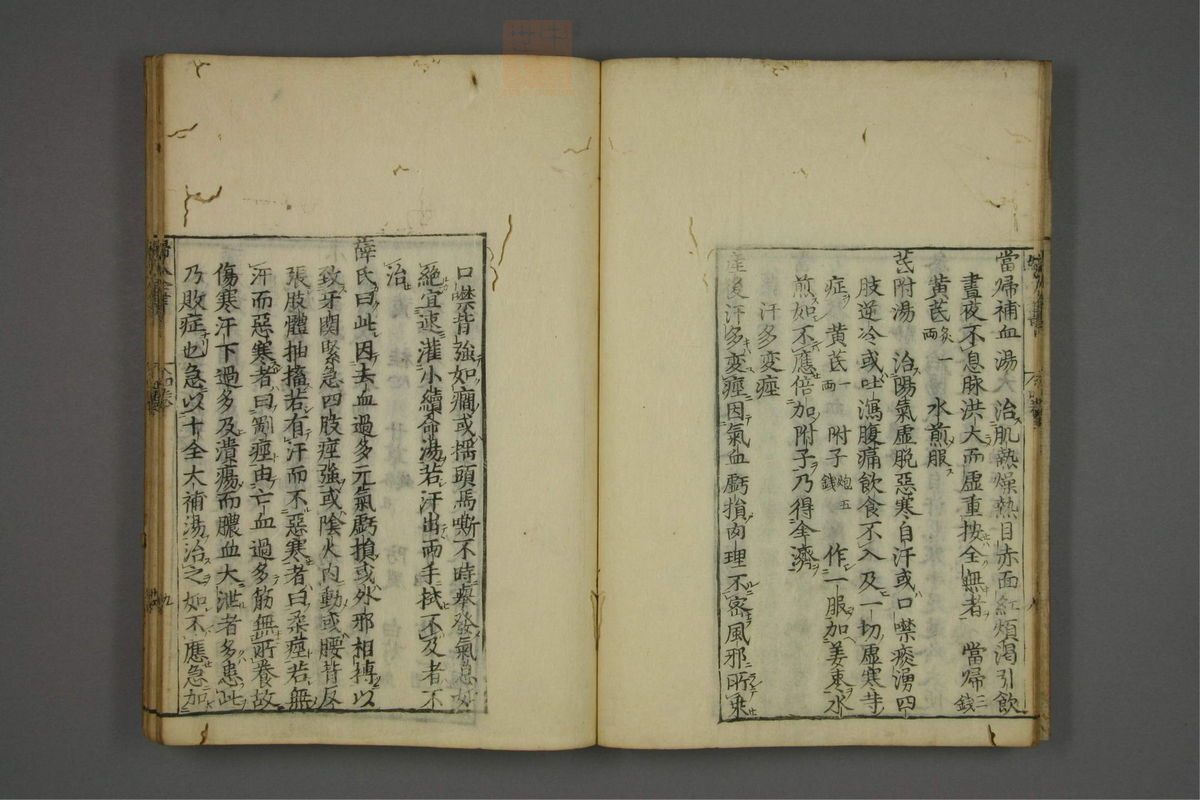 當歸補血湯 治肌熱燥熱目赤面紅煩渴引飲
晝夜不息脉洪大而虛重按全無者 當歸二錢
黄茋炙一兩 水煎服
茋附湯 治陽氣虛脱惡寒自汗或口噤痰湧四
肢逆冷或吐瀉腹痛飲食不入及一切虛寒等
症 黄茋一兩 附子炮五錢 作一服加姜棗水
煎如不應倍加附子乃得全濟
汗多変痙
産後汗多変痙因氣血虧損肉理不密風邪所乗
口噤背強如癇或揺頭馬嘶不時擧發氣息如
絕宜速灌小續命湯若汗出兩手拭不及者不
治
薛氏曰此因去血過多元氣虧損或外邪相搏以
致牙關緊急四肢痙強或陰火内動或腰背反
張肢體抽搐若有汗而不惡寒者曰柔痙若無
汗而惡寒者曰剛痙由亡血過多筋無所養故
傷寒汗下過多及潰瘍而膿血大泄者多患此
乃敗症也急以十全大補湯治之如不應急加
九